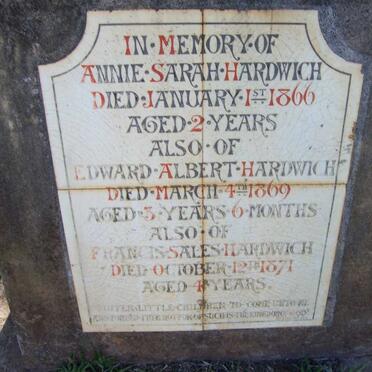 IN·MEMORY·OF
ANNIE·SARAH·HARDWICH
DIED·JANUARY·1ST·1866
AGED·2·YEARS
ALSO·OF
EDWARD·ALBERT·HARDWICH
DIED·MARCH·4TH·1869
AGED·3·YEARS·6·MONTHS
ALSO·OF
FRANCIS·SALES·HARDWICH
DIED·OCTOBER·12TH·1871
AGED·4·YEARS.
SUFFER·LITTLE·CHILDREN·TO·COME·UNTO·ME
AND·FORBID·THEM·NOT·FOR·OF·SUCH·IS·THE·KINGDOM·OF·GOD